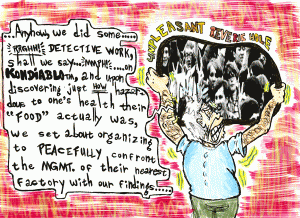 ...Anyhow, we did some.....
RRGHH! DETECTIVE WORK,
shall we say...:NMPH:....on
KONDIABLA, and upon
discovering just HOW hazar-
dous to one's health their
"FOOD" actually was,
we set about organizing
to PEACEFULLY confront
the MGMT. of their nearest
factory with our findings....
UNPLEASANT REVERIE HOLE